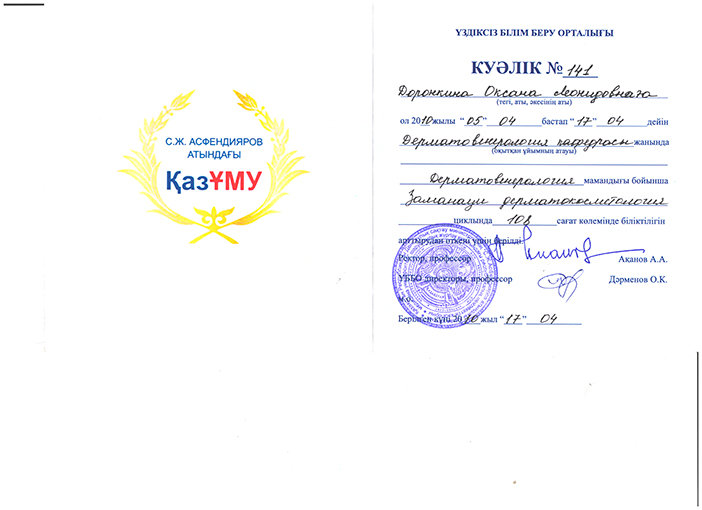 С.Ж. АСФЕНДИЯРОВ
АТЫНДАҒЫ
ҚазҰМУ
ҮЗДІКСІЗ БІЛІМ БЕРУ ОРТАЛЫҒЫ
КУӘЛІК № 141
Доронкина Оксана Леонидовнаға
(тегі, аты, әкесінің аты)
ол 2010жылы "05" 04 бастап "17" 04 дейін
Дерматовенрология кафедрасы жанында
(оқытқан ұйымның атауы)
Дерматовенрология мамандығы бойынша
Заманауи дерматокосметология
циклында 108 сағат көлемінде біліктілігін
арттырудан өткені үшін берілді.
Ректор, профессор Аканов А.А.
ҮББО директоры, профессор Дәрменов О.К.
М.О.
Берілген күні 2010 жыл "17" 04